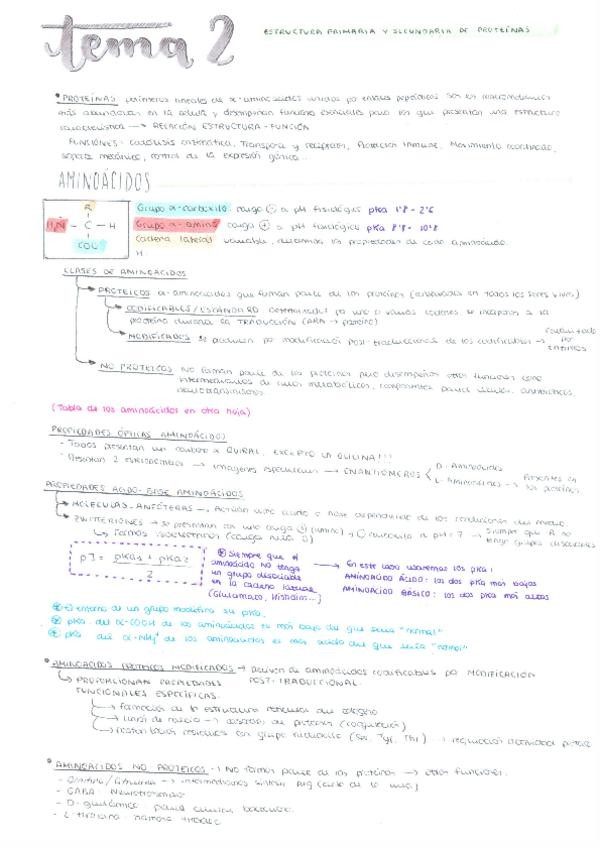 tema 2
ESTRUCTURA PRIMARIA Y SECUNDARIA DE PROTEÍNAS
• PROTEÍNAS polímeros lineales de α-aminoácidos unidos por enlaces peptídicos son las macromoléculas
más abundantes en la célula y desempeñan funciones esenciales para los que presentan una estructura
característica → RELACIÓN ESTRUCTURA-FUNCIÓN
FUNCIONES: catálisis enzimática, Transporte y recepción, Protección Inmune, Movimiento coordinado,
soporte mecánico, control de la expresión génica...
AMINOÁCIDOS
R
H₃N - C - H
COO⁻
Grupo α-carboxilo carga ⊖ a pH fisiológico pKa 1'8 - 2'6
Grupo α-amino carga ⊕ a pH fisiológico pKa 8'8 - 10'8
Cadena lateral variable, determina las propiedades de cada aminoácido.
H
CLASES DE AMINOÁCIDOS
PROTEICOS α-aminoácidos que forman parte de las proteínas (conservados en todos los seres vivos)
CODIFICABLES/ESTÁNDARD determinados por uno o varios codones, se incorporan a la
proteína durante la TRADUCCIÓN (ARN → proteína)
MODIFICADOS se producen por modificación post-traduccional de los codificables → catalizado
por
enzimas
NO PROTEICOS No forman parte de las proteínas pero desempeñan otras funciones como
intermediarios de rutas metabólicas, componentes pared celular, antibióticos,
neurotransmisores.
(Tabla de los aminoácidos en otra hoja)
PROPIEDADES ÓPTICAS AMINOÁCIDOS
- Todos presentan un carbono α QUIRAL, EXCEPTO LA GLICINA!!!
- Presentan 2 estereoisómeros → imágenes especulares → ENANTIÓMEROS
D-Aminoácidos
L-Aminoácidos → Presentes en
las proteínas
PROPIEDADES ÁCIDO-BASE AMINOÁCIDOS
MOLÉCULAS ANFÓTERAS → Actúan como ácido o base dependiendo de las condiciones del medio
ZWITTERIONES → se presentan con una carga ⊕ (amino) y ⊖ carboxilo a pH = 7 → Siempre que R no
tenga grupos disociables
↳ Formas isoeléctricas (carga neta 0)
pI = pKa1 + pKa2
2
Siempre que el
aminoácido no tenga
un grupo disociable
en la cadena lateral
(Glutamato, Histidina...)
→ En este caso usaremos los pKa:
AMINOÁCIDO ÁCIDO: los dos pKa más bajos
AMINOÁCIDO BÁSICO: los dos pka más altos
El entorno de un grupo modifica su pKa.
pKa del α-COOH de los aminoácidos es más bajo del que sería "normal"
pKa del α-NH₃⁺ de los aminoácidos es más ácido del que sería "normal"
• AMINOÁCIDOS PROTEICOS MODIFICADOS → derivan de aminoácidos codificables por MODIFICACIÓN
POST-TRADUCCIONAL.
↳ PROPORCIONAN PROPIEDADES
FUNCIONALES ESPECÍFICAS.
→ formación de la estructura del colágeno
→ unión de calcio → proteínas (coagulación)
→ residuos con grupo hidroxilo (Ser, Tyr, Thr) → regulación actividad
• AMINOÁCIDOS NO PROTEICOS → No forman parte de las proteínas → otras funciones.
- Ornitina/Citrulina → intermediarios síntesis Arg (ciclo de la urea)
- GABA: Neurotransmisor
- D-glutámico: pared celular bacteriana.
- L-tiroxina: hormona tiroidea